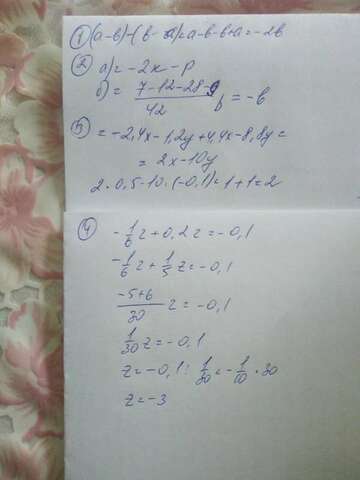 ① (a-b)-(b-a)=a-b-b+a=-2b
② a)=-2x-p
б)= \frac{7-12-28-9}{42} b=-b
③ =-2,4x-1,2y+4,4x-8,8y=
=2x-10y
2·0,5-10·(-0,1)=1+1=2
④ -\frac{1}{6}z+0,2z=-0,1
-\frac{1}{6}z+\frac{1}{5}z=-0,1
\frac{-5+6}{30}z=-0,1
\frac{1}{30}z=-0,1
z=-0,1:\frac{1}{30}=-\frac{1}{10}·30
z=-3